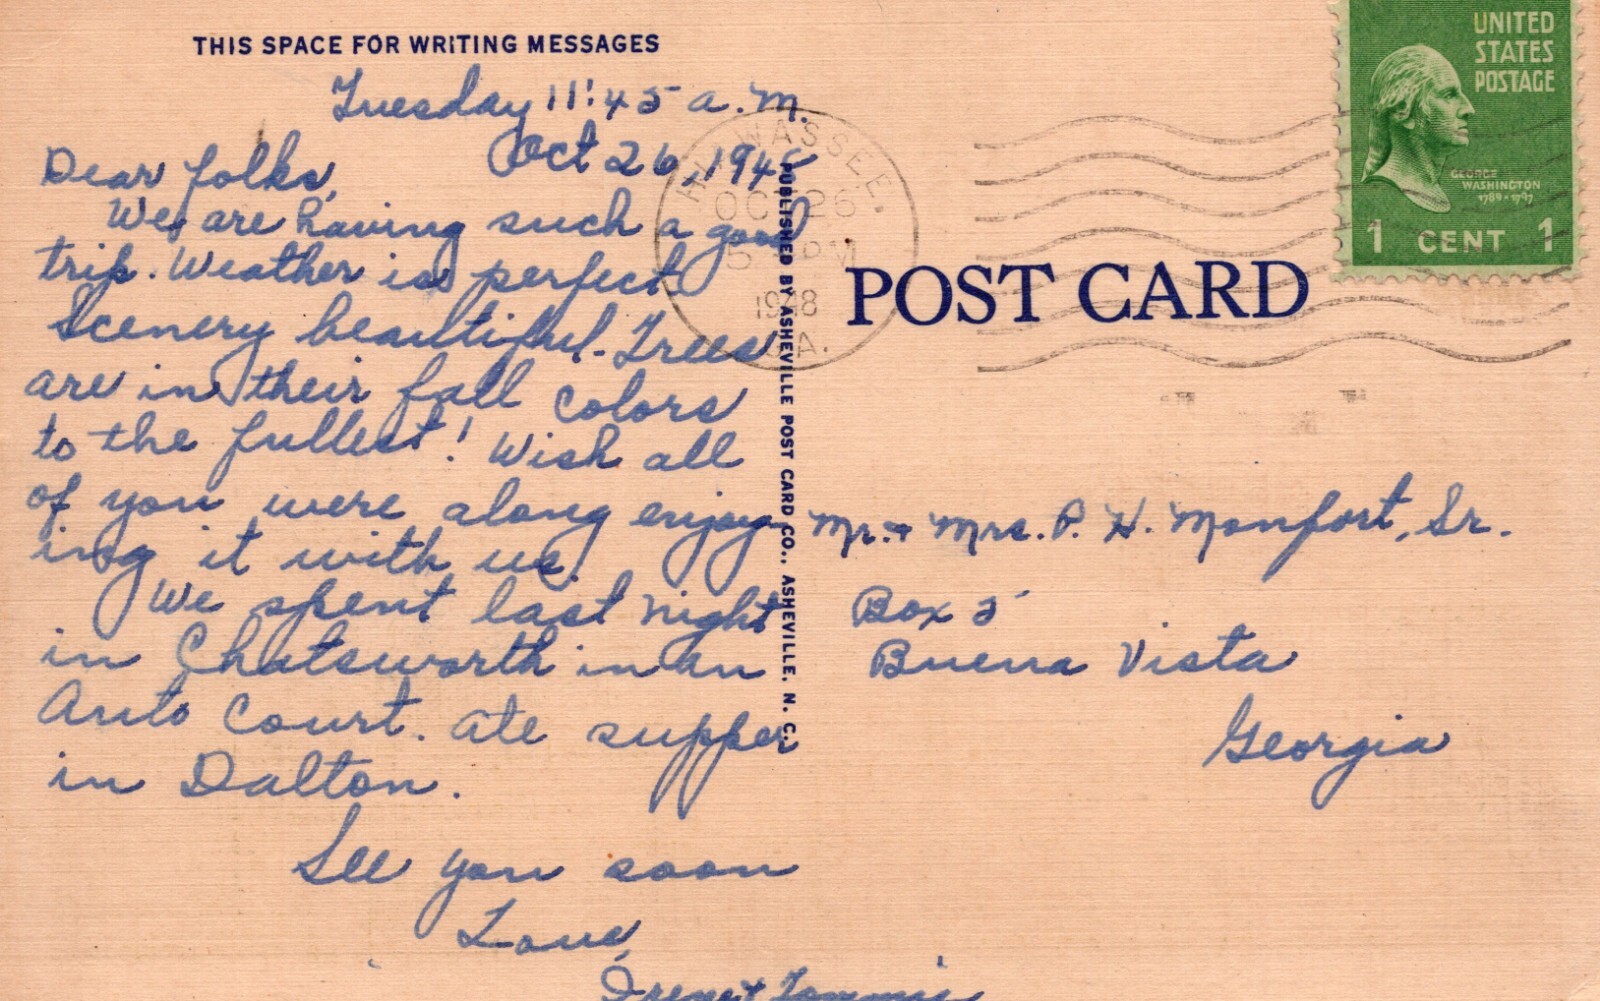 THIS SPACE FOR WRITING MESSAGES
Tuesday 11:45 a.m.
Oct 26, 1948
Dear folks,
We are having such a good
trip. Weather is perfect
Scenery beautiful. Trees
are in their fall colors
to the fullest! Wish all
of you were along enjoy-
ing it with us.
We spent last night
in Chatsworth in an
Auto Court. Ate supper
in Dalton.
See you soon
Love,
Irene & Tommie
PUBLISHED BY ASHEVILLE POST CARD CO., ASHEVILLE, N. C.
HIAWASSEE,
OCT 26
5 PM
1948
GA.
UNITED
STATES
POSTAGE
GEORGE
WASHINGTON
1789-1797
1 CENT 1
POST CARD
Mr. & Mrs. P. H. Monfort, Sr.
Box 5
Buena Vista
Georgia